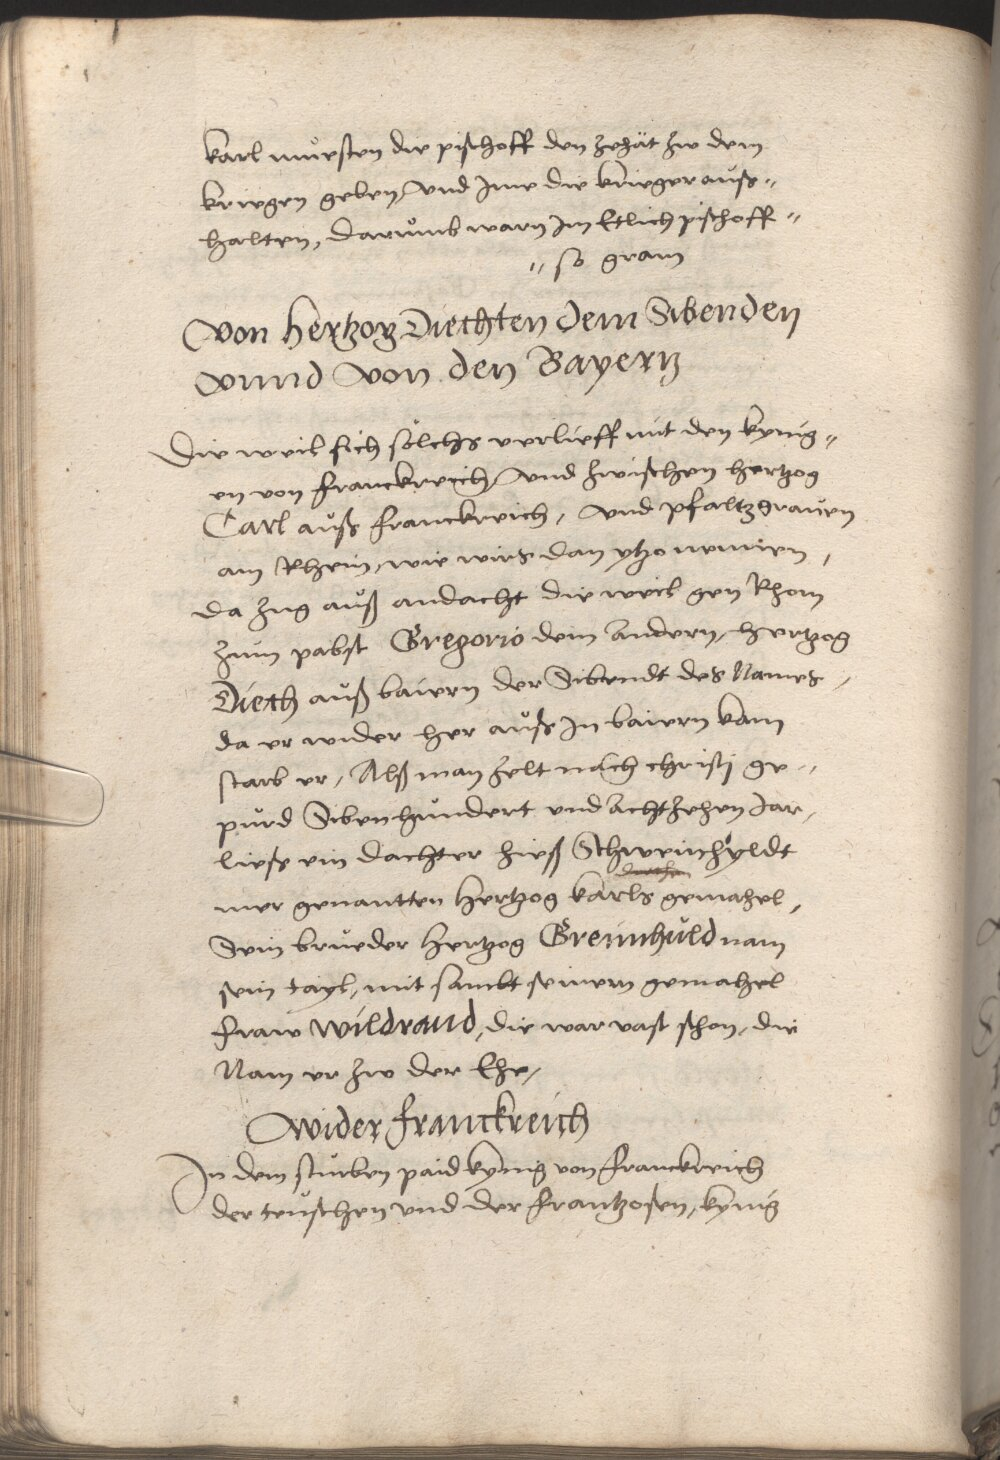 karl muesten die pischoff den zehat zw dem
kriegen geben, vnd Jme die krieger auß=
halten, darumb warn Jm Etlich pischoff=
=so gram
Von hertzog Diethten dem Sibenden
Vnnd Von den Bayern
Die weil sich sölchs verlieff mit den kynig=
en von Franckreich, Vnd zwischen hertzog
Carl auß Franckreich, Vnd pfaltzgrauen
am Rhein, wie wirs dan ytzo nennen,
da zug auß andacht die weil gen Rhom
zum pabst Gregorio dem Andern, hertzog
Dieth auß baiern der Sibendt des Names,
da er wider her auß Jn baiern kam
starb er, Alß man zelt nach christi ge=
purd Sibenhundert vnd Achtzehen Jar,
ließ ein dachter hieß Schweinhyldt
mer genantten hertzog karls gemahel,
Sein brueder hertzog Greimhuld nam
sein tayl, mit sambt seinem gemahel
fraw Wildraud, die war vast schon, die
Nam er zw der Ehe,
Wider Franckreich
In dem sturben paid kynig von Franckreich
der teuschen vnd der Frantzosen, kynig